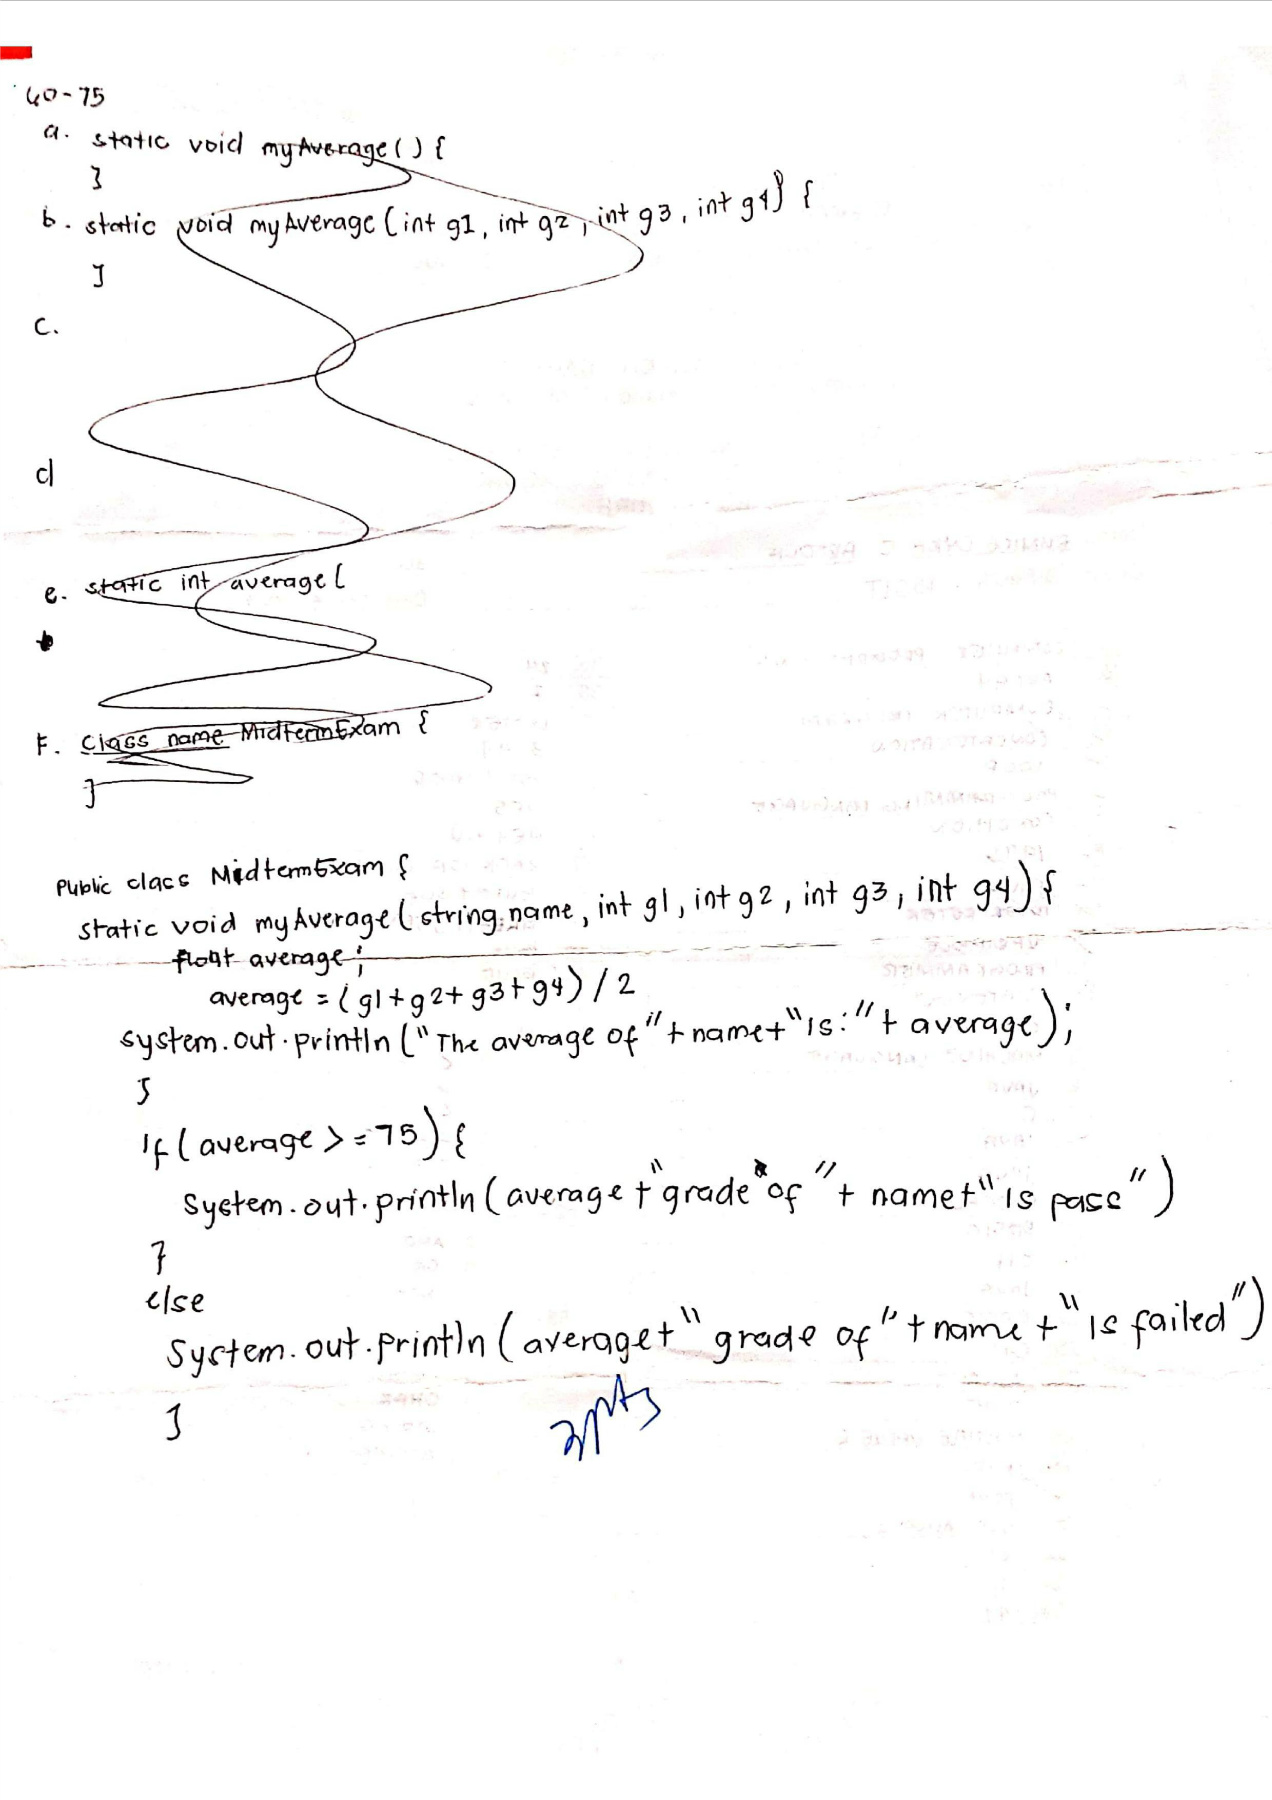 60-75
a. static void myAverage() {
}
b. static void myAverage (int g1, int g2, int g3, int g4) {
}
c.
d
e. static int average (
F. Class name MidtermExam {
}
Public class MidtermExam {
static void myAverage( string name, int g1, int g2, int g3, int g4) {
float average;
average = (g1+g2+g3+g4) / 2
system.out.println ("The average of" + name+"is:"+ average);
}
If (average >=75) {
System.out.println (average +"grade of "+ name+" is pass")
}
else
System.out.println (average+" grade of "+name +" is failed")
}
3pts